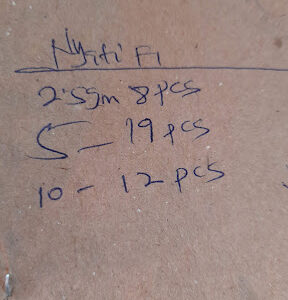 Nyiti Fi
2.5gm 8pcs
5 - 19pcs
10 - 12pcs